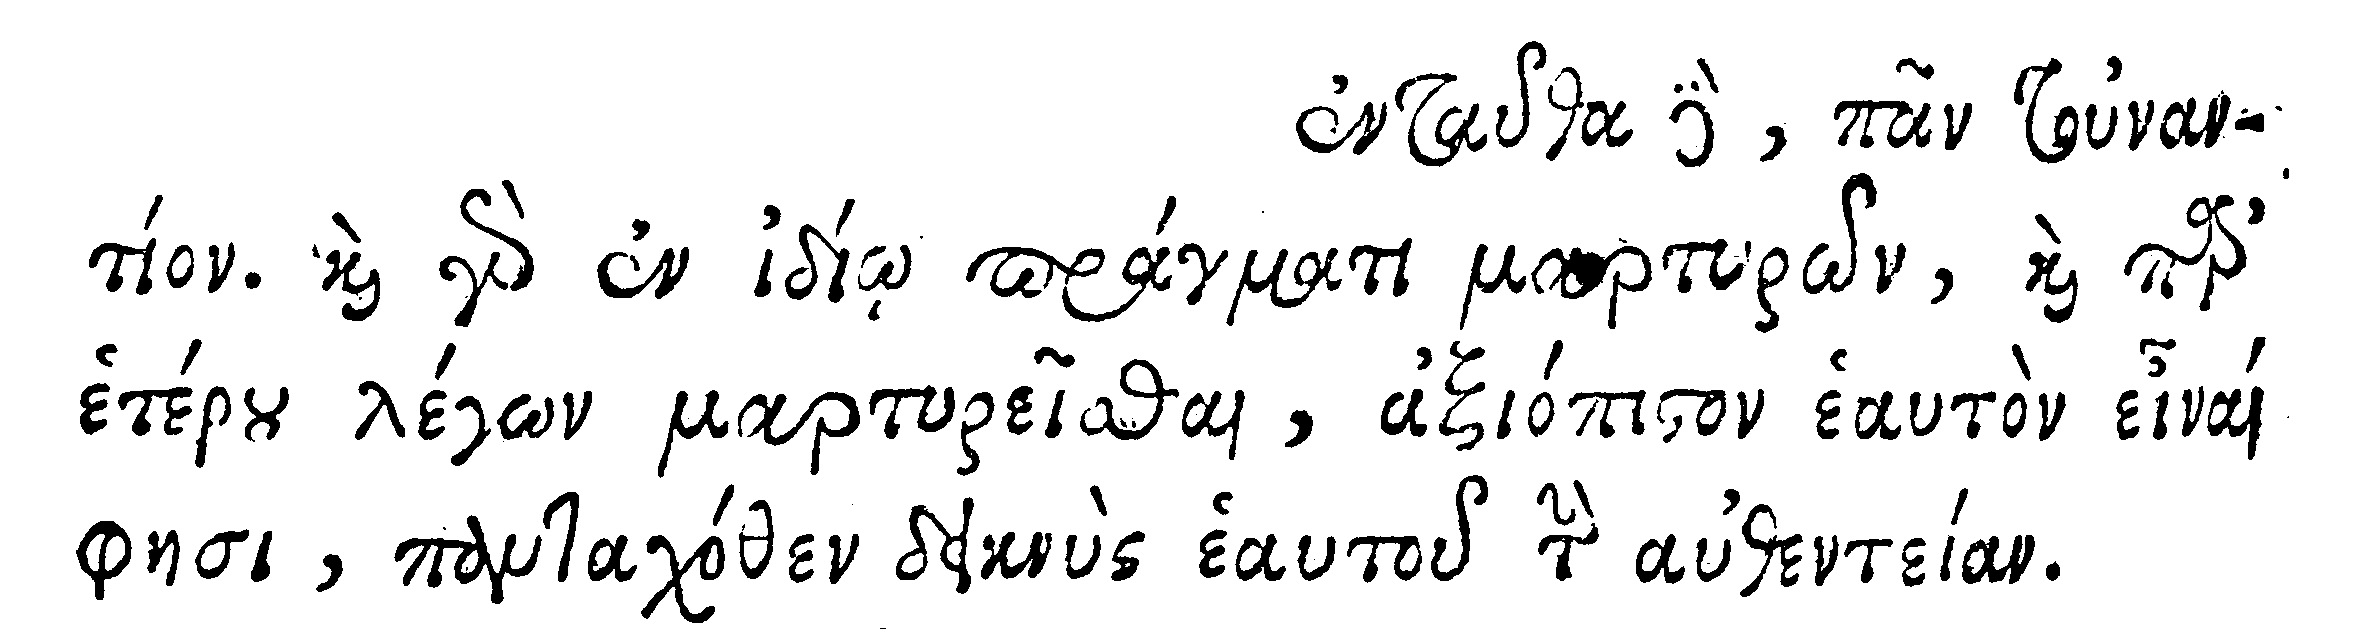 ἐνταῦθα δὲ, πᾶν τοὐναν-
τίον. καὶ γὰρ ἐν ἰδίῳ πράγματι μαρτυρῶν, καὶ παρ’
ἑτέρου λέγων μαρτυρεῖσθαι, ἀξιόπιστον ἑαυτὸν εἶναί
φησι, πανταχόθεν δεικνὺς ἑαυτοῦ τὴν αὐθεντείαν.